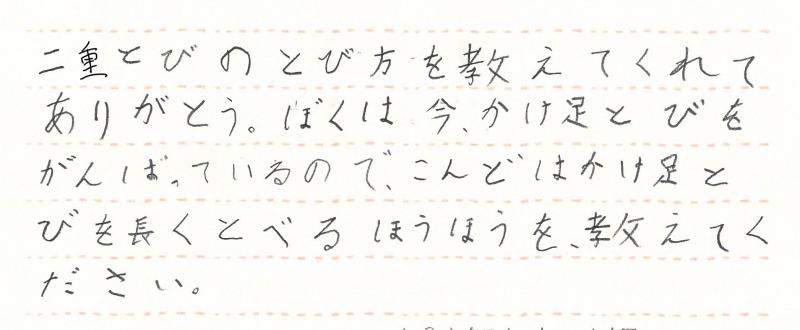 二重とびのとび方を教えてくれて
ありがとう。ぼくは今、かけ足とびを
がんばっているので、こんどはかけ足と
びを長くとべるほうほうを、教えてく
ださい。